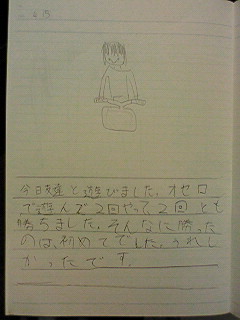 今日友達と遊びました。オセロ
で遊んで2回やって、2回とも
勝ちました。そんなに勝った
のは、初めてでした。うれし
かったです。